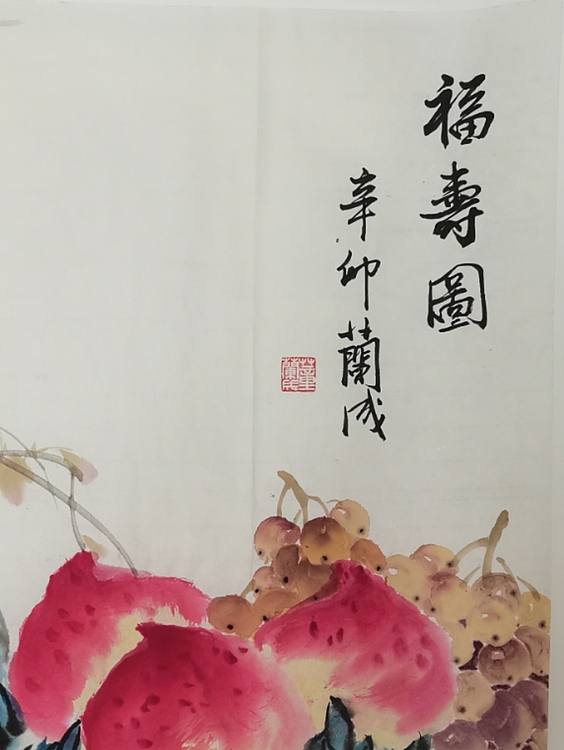 福壽圖
辛卯蘭成